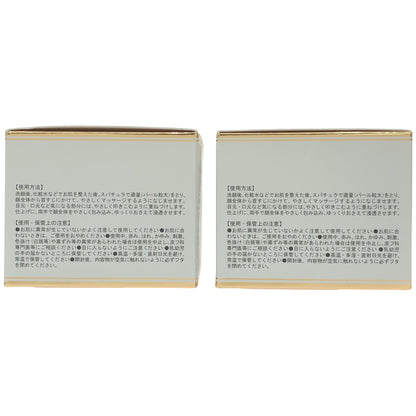 【使用方法】
洗顔後、化粧水などでお肌を整えた後、スパチュラで適量(パール粒大)をとり、
顔全体から首すじにかけて、やさしくマッサージするようになじませます。
目元・口元など気になる部分には、やさしく叩きこむように重ねづけします。
仕上げに、両手で顔全体をやさしく包み込み、ゆっくりおさえて浸透させます。
【使用・保管上の注意】
●お肌に異常が生じていないかよく注意して使用してください●お肌に合
わないときは、ご使用をおやめください●使用中、赤み、はれ、かゆみ、刺激、
色抜け(白斑等)や黒ずみ等の異常があらわれた場合は使用を中止し、皮フ科
専門医等にご相談ください●目に入らないようにご注意ください●乳幼児
の手の届かないところに保管してください●高温・多湿・直射日光を避け、
常温で保管してください●開封後、内容物が空気に触れないように必ずフタ
を閉めてください。
【使用方法】
洗顔後、化粧水などでお肌を整えた後、スパチュラで適量(パール粒大)をとり、
顔全体から首すじにかけて、やさしくマッサージするようになじませます。
目元・口元など気になる部分には、やさしく叩きこむように重ねづけします。
仕上げに、両手で顔全体をやさしく包み込み、ゆっくりおさえて浸透させます。
【使用・保管上の注意】
●お肌に異常が生じていないかよく注意して使用してください●お肌に合
わないときは、ご使用をおやめください●使用中、赤み、はれ、かゆみ、刺激、
色抜け(白斑等)や黒ずみ等の異常があらわれた場合は使用を中止し、皮フ科
専門医等にご相談ください●目に入らないようにご注意ください●乳幼児
の手の届かないところに保管してください●高温・多湿・直射日光を避け、
常温で保管してください●開封後、内容物が空気に触れないように必ずフタ
を閉めてください。